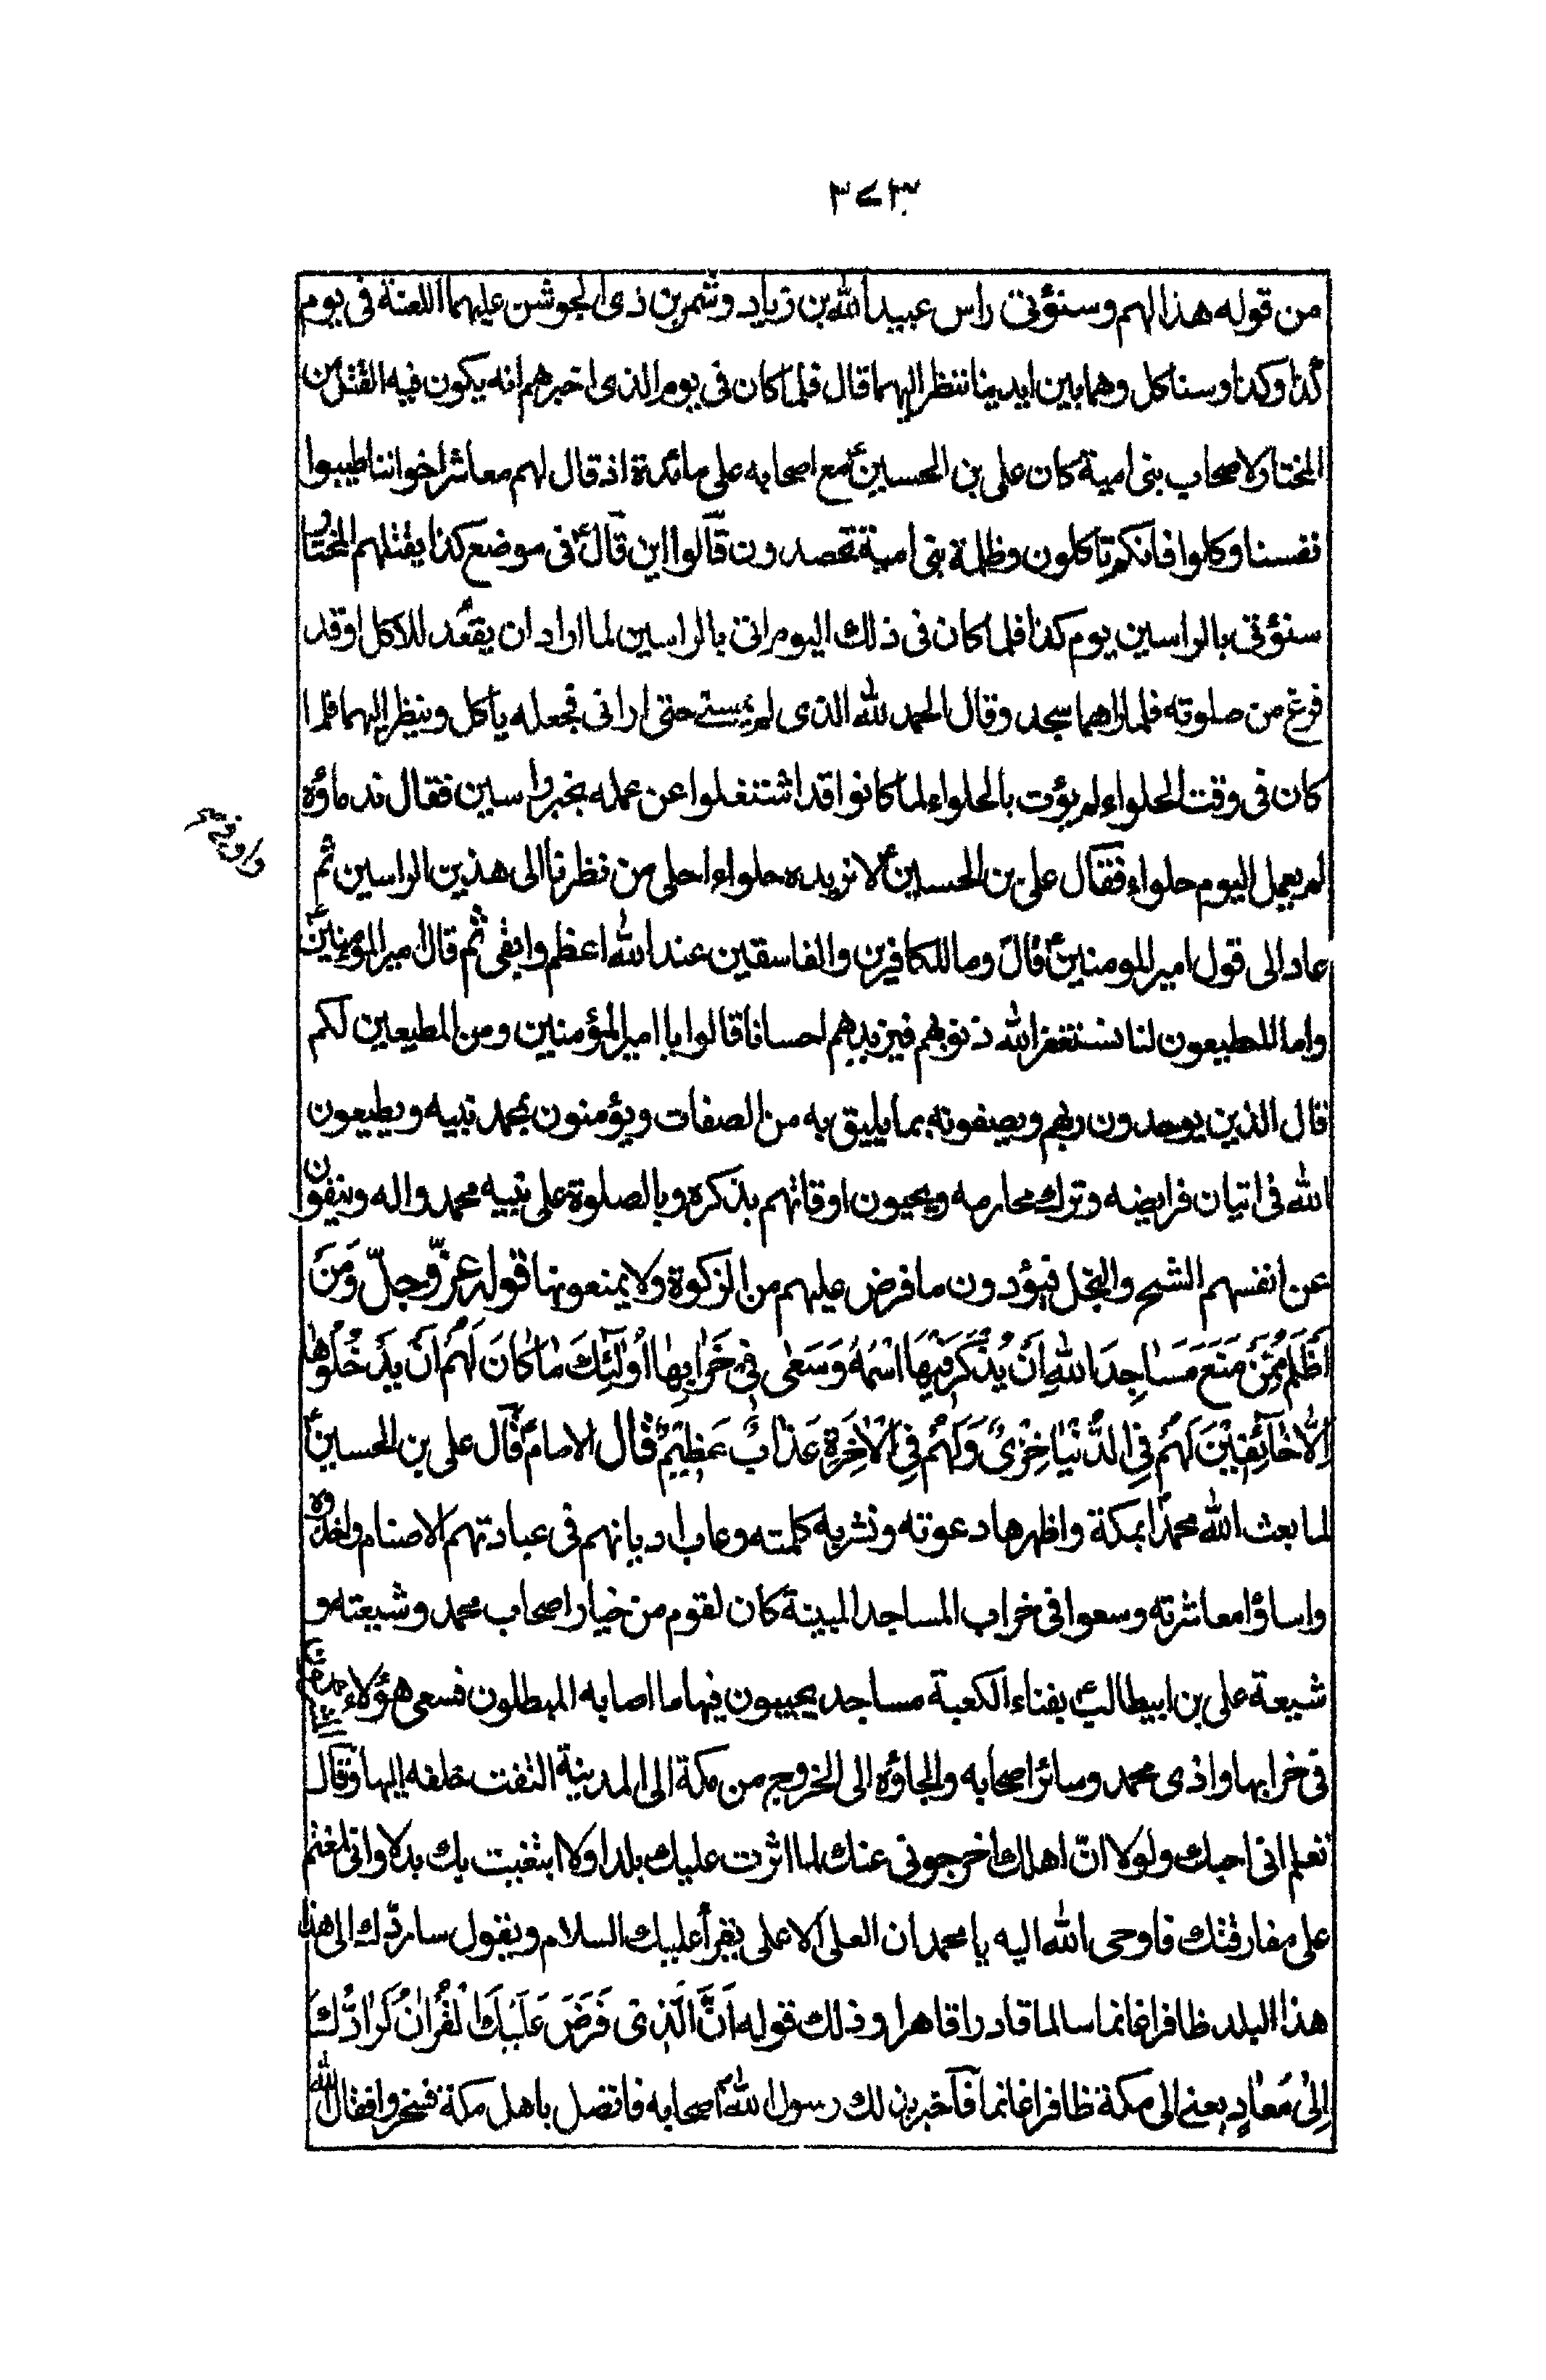 ٣٧٣
من قوله هذا لهم وسنؤتى راس عبيد الله بن زياد وشمر بن ذى الجوشن عليهما اللعنة فى يوم
كذا وكذا وسناكل وهما بين ايدينا ننظر اليهما قال فلما كان فى يوم الذى اخبرهم انه يكون فيه القتل من
المختار لاصحاب بنى امية كان على بن الحسينؑ مع اصحابه على مائدة اذ قال لهم معاشر اخواننا طيبوا
نفسنا وكلوا فانكم تاكلون وظلمة بنى امية تحصدون قالوا اين قالؑ فى موضع كذا يقتلهم المختار
سنؤتى بالراسين يوم كذا فلما كان فى ذلك اليوم اتى بالراسين لما اراد ان يقعد للاكل وقد
فرغ من صلوته فلما راهما سجد وقال الحمد لله الذى لم يمتنى حتى ارانى فجعله ياكل وينظر اليهما فلما
كان فى وقت الحلواء لم يؤت بالحلواء لما كانوا قد اشتغلوا عن عمله بخبر راسين فقال ندماؤه
لم يعمل اليوم حلواء فقال على بن الحسينؑ لا نريده حلواء احلى من نظرنا الى هذين الراسين ثم
عاد الى قول امير المومنينؑ قال وما للكافرين والفاسقين عند الله اعظم وابقى ثم قال امير المؤمنينؑ
واما المطيعون لنا نستغفر الله ذنوبهم فيزيدهم احسانا قالوا يا امير المؤمنين ومن المطيعين لكم
قال الذين يوحدون ربهم ويصفونه بما يليق به من الصفات ويؤمنون بمحمد نبيه ويطيعون
الله فى اتيان فرايضه وترك محارمه ويحيون اوقاتهم بذكره وبالصلوة على نبيه محمد واله وينفون
عن انفسهم الشح والبخل فيؤدون ما فرض عليهم من الزكوة ولا يمنعونها قوله عزّ وجلّ وَمَنْ
اَظْلَمُ مِمَّنْ مَنَعَ مَسَاجِدَ اللهِ اَنْ يُذْكَرَ فِيهَا اسْمُهُ وَسَعٰى فِى خَرَابِهَا اُولٰئِكَ مَا كَانَ لَهُمْ اَنْ يَدْخُلُوهَا
اِلَّا خَائِفِيْنَ لَهُمْ فِى الدُّنْيَا خِزْىٌ وَلَهُمْ فِى الْاٰخِرَةِ عَذَابٌ عَظِيْمٌ قال الامامؑ قال على بن الحسينؑ
لما بعث الله محمدا بمكة واظهر بها دعوته ونشر به كلمته وعاب اديانهم فى عبادتهم الاصنام واخذوه
واساؤا معاشرته وسعوا فى خراب المساجد المبينة كان لقوم من خيار اصحاب محمد وشيعته و
شيعة على بن ابيطالبؑ بفناء الكعبة مساجد يحيون فيها ما اصابه المبطلون فسعى هؤلاء
فى خرابها واذى محمد وسائر اصحابه والجاؤه الى الخروج من مكة الى المدينة التفت خلفه اليها وقال
تعلم انى احبك ولولا انّ اهلك اخرجونى عنك لما اثرت عليك بلدا ولا ابتغيت بك بدلا وانى لمغتم
على مفارقتك فاوحى الله اليه يا محمد ان العلى الاعلى يقرأ عليك السلام ويقول ساردّك الى هذا
هذا البلد ظافرا غانما سالما قادرا قاهرا وذلك قوله اِنَّ الَّذِى فَرَضَ عَلَيْكَ الْقُرْاٰنَ لَرَادُّكَ
اِلٰى مَعَادٍ يعنى الى مكة ظافرا غانما فاخبر بذلك رسول الله اصحابه فاتصل باهل مكة فسخروا فقال الله